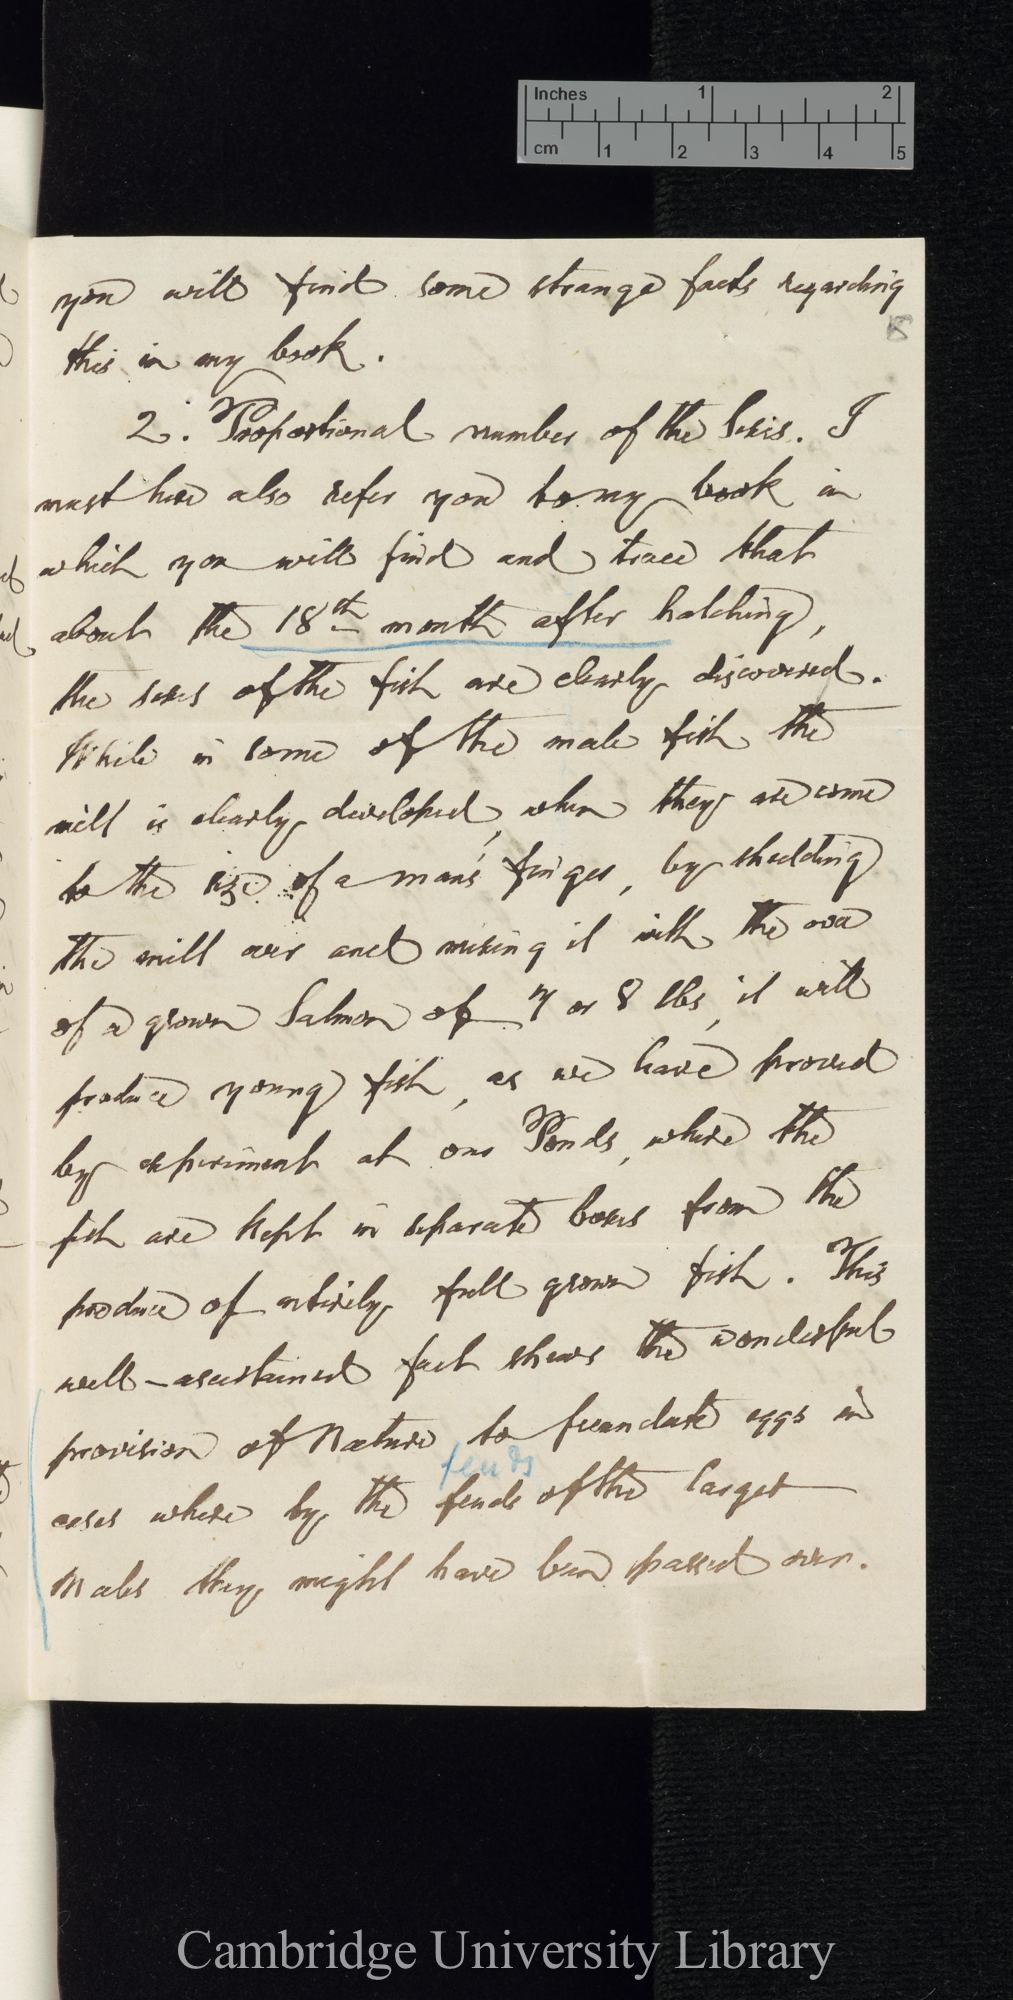 Inches 1 2
cm 1 2 3 4 5
you will find some strange facts regarding
this in my book.
2. Proportional number of the Sexes. I
must here also refer you to my book in
which you will find and trace that
about the 18th month after hatching,
the sexes of the fish are clearly discovered.
While in some of the male fish the
milt is clearly developed, when they are come
to the size of a man's finger, by shedding
the milt over and mixing it with the ova
of a grown Salmon of 7 or 8 lbs, it will
produce young fish, as we have proved
by experiment at our Ponds, where the
fish are kept in separate boxes from the
produce of entirely full grown fish. This
well-ascertained fact shews the wonderful
provision of Nature to fecundate eggs in
feuds
cases where by the feuds of the larger
Males they might have been passed over.
Cambridge University Library